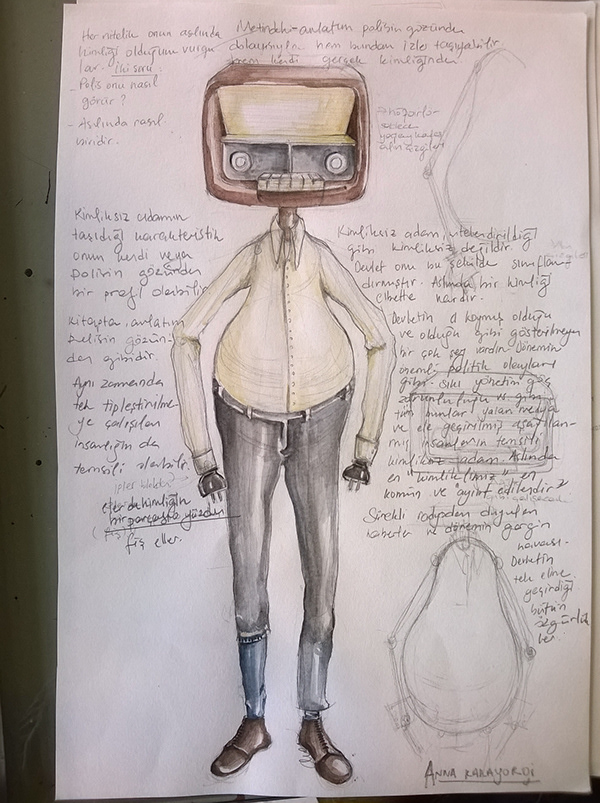 Her nitelik onun aslında
kimliği olduğunu vurgu
lar. İki soru:
- Polis onu nasıl
görür?
- Aslında nasıl
biridir.
Metindeki anlatım polisin gözünden
dolayısıyla hem bundan izler taşıyabilir
hem kendi gerçek kimliğinden
Hoparlör
Kimliksiz adamın
taşıdığı karakteristik
onun kendi veya
polisin gözünden
bir profil olabilir
Kitapta anlatım
polisin gözün-
den gibidir.
Aynı zamanda
tek tipleştirilme-
ye çalışılan
insanlığın da
temsili olabilir.
eller de kimliğin
bir parçası yüzden
fiş eller.
Kimliksiz adam, nitelendirildiği
gibi kimliksiz değildir.
Devlet onu bu şekilde sınıflan-
dırmıştır. Aslında bir kimliği
elbette vardır.
Devletin el koymuş olduğu
ve olduğu gibi göstermeyen
bir çok şey vardır. Dönemin
önemli politik olayları
gibi. Sıkı yönetim göç
zorunluluğu vs gibi
tüm bunlar yalan medya
ve ele geçirilmiş
insanların temsili
kimliksiz adam. Aslında
en "kimliklimiz" en
komün ve "ayırt edilendir"
Sürekli radyodan duyulan
haberler ve dönemin gergin
havası.
Devletin
tek eline
geçirdiği
bütün
özgürlük
ler.
ANNA KARAYORGİ